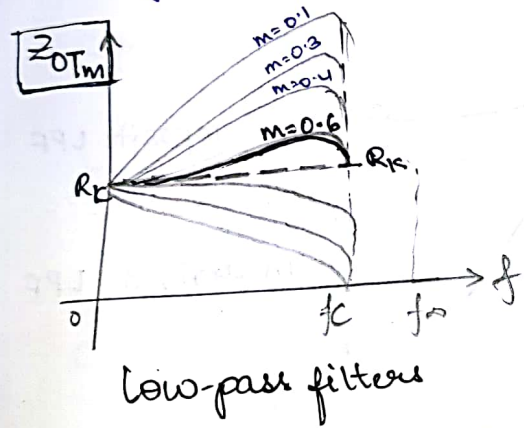 Z0Tm
m=0.1
m=0.3
m=0.4
m=0.6
RK
RK
f
0
fC
f∞
Low-pass filters